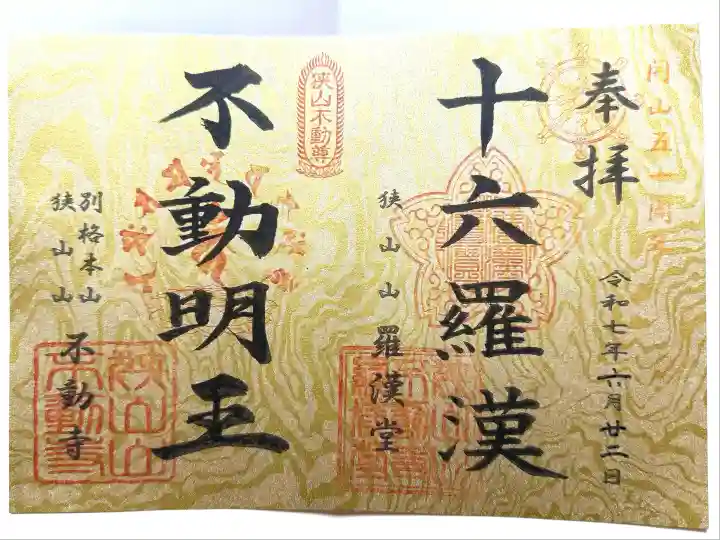 開山五十周年
奉拝
令和七年六月廿二日
十六羅漢
狭山山 羅漢堂
狭山不動尊
不動明王
別格本山
狭山山 不動寺